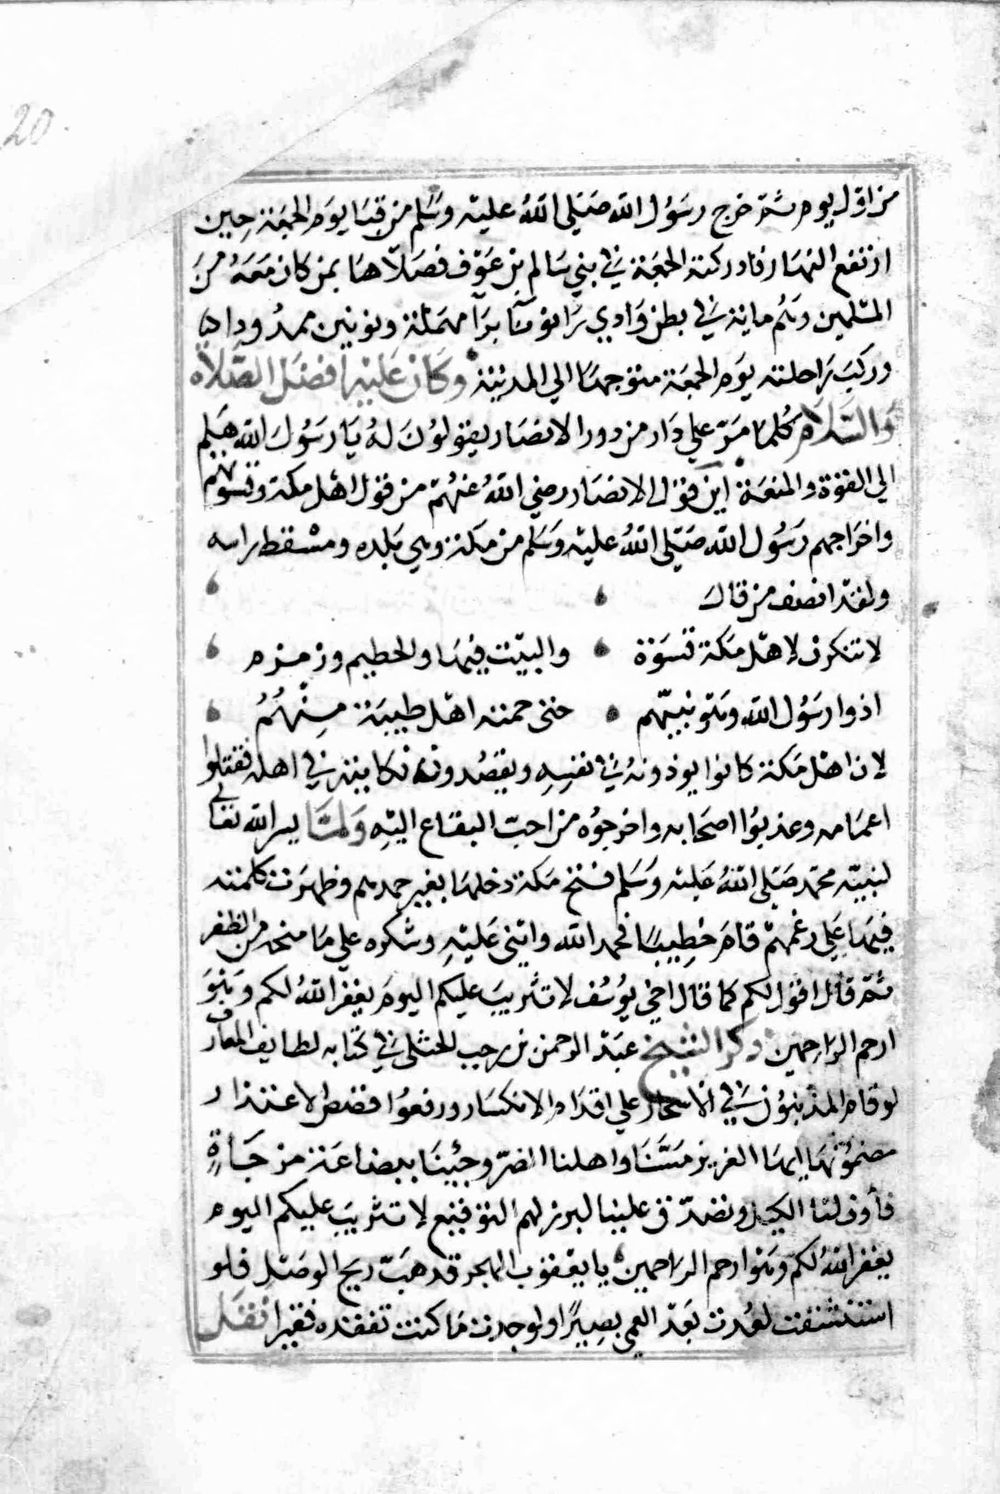 20
من اول يوم ثم خرج رسول الله صلى الله عليه وسلم من قبا يوم الجمعة حين
ارتفع النهار فادركته الجمعة في بني سالم بن عوف فصلاها بمن كان معه من
المسلمين وهم ماية في بطن وادي رانونآ برآ مهملة ونونين ممدودا
وركب راحلته يوم الجمعة متوجها الي المدينة وكان عليه افضل الصلاة
والسلام كلما مر علي دار من دور الانصار يقولون له يا رسول الله هلم
الي القوة والمنعة اين قول الانصار رضي الله عنهم من قول اهل مكة وقسوتهم
واخراجهم رسول الله صلى الله عليه وسلم من مكة وهي بلده ومسقط راسه
ولقد انصف من قال
لا تنكرن لاهل مكة قسوة والبيت فيها والحطيم وزمزم
اذوا رسول الله وهو نبيهم حتى حمته اهل طيبة منهم
لان اهل مكة كانوا يوذونه في نفسه ويقصدونه نكاية في اهله فقتلوا
اعمامه وعذبوا اصحابه واخرجوه من احب البقاع اليه ولما يسر الله تعالى
لنبيه محمد صلى الله عليه وسلم فتح مكة دخلها بغير حمدهم وظهرت كلمته
فيها علي رغمهم قام خطيبا فحمد الله واثني عليه وشكره علي ما منحه من الظفر
ثم قال اقول لكم كما قال اخي يوسف لا تثريب عليكم اليوم يغفر الله لكم وهو
ارحم الراحمين ذكر الشيخ عبد الرحمن بن رجب الحنبلي في كتابه لطايف المعارف
لو قام المذنبون في الاسحار علي اقدام الانكسار ورفعوا قصص الاعتذار
مضمونها يا ايها العزيز مسنا واهلنا الضر وجئنا ببضاعة مزجاة
فأوف لنا الكيل وتصدق علينا لبرز لهم التوقيع لا تثريب عليكم اليوم
يغفر الله لكم وهو ارحم الراحمين يا يعقوب الهجر قد هبت ريح الوصل فلو
استنشقت لعدت بعد العمى بصيرا ولوجدت ما كنت تفقده فقيرا نقل